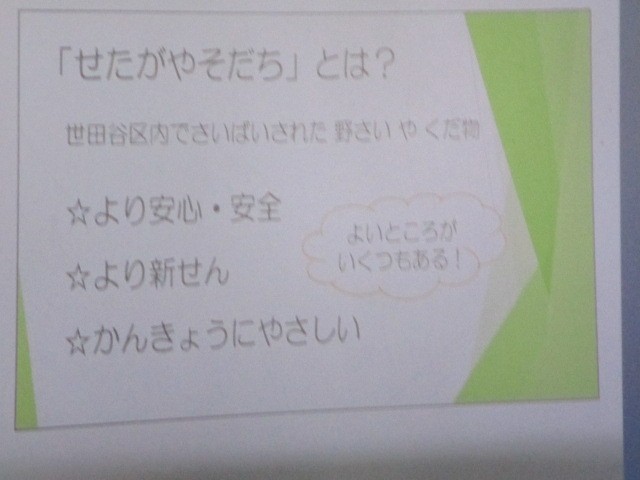 「せたがやそだち」とは？
世田谷区内でさいばいされた 野さい や くだ物
☆より安心・安全
☆より新せん
☆かんきょうにやさしい
よいところが
いくつもある！